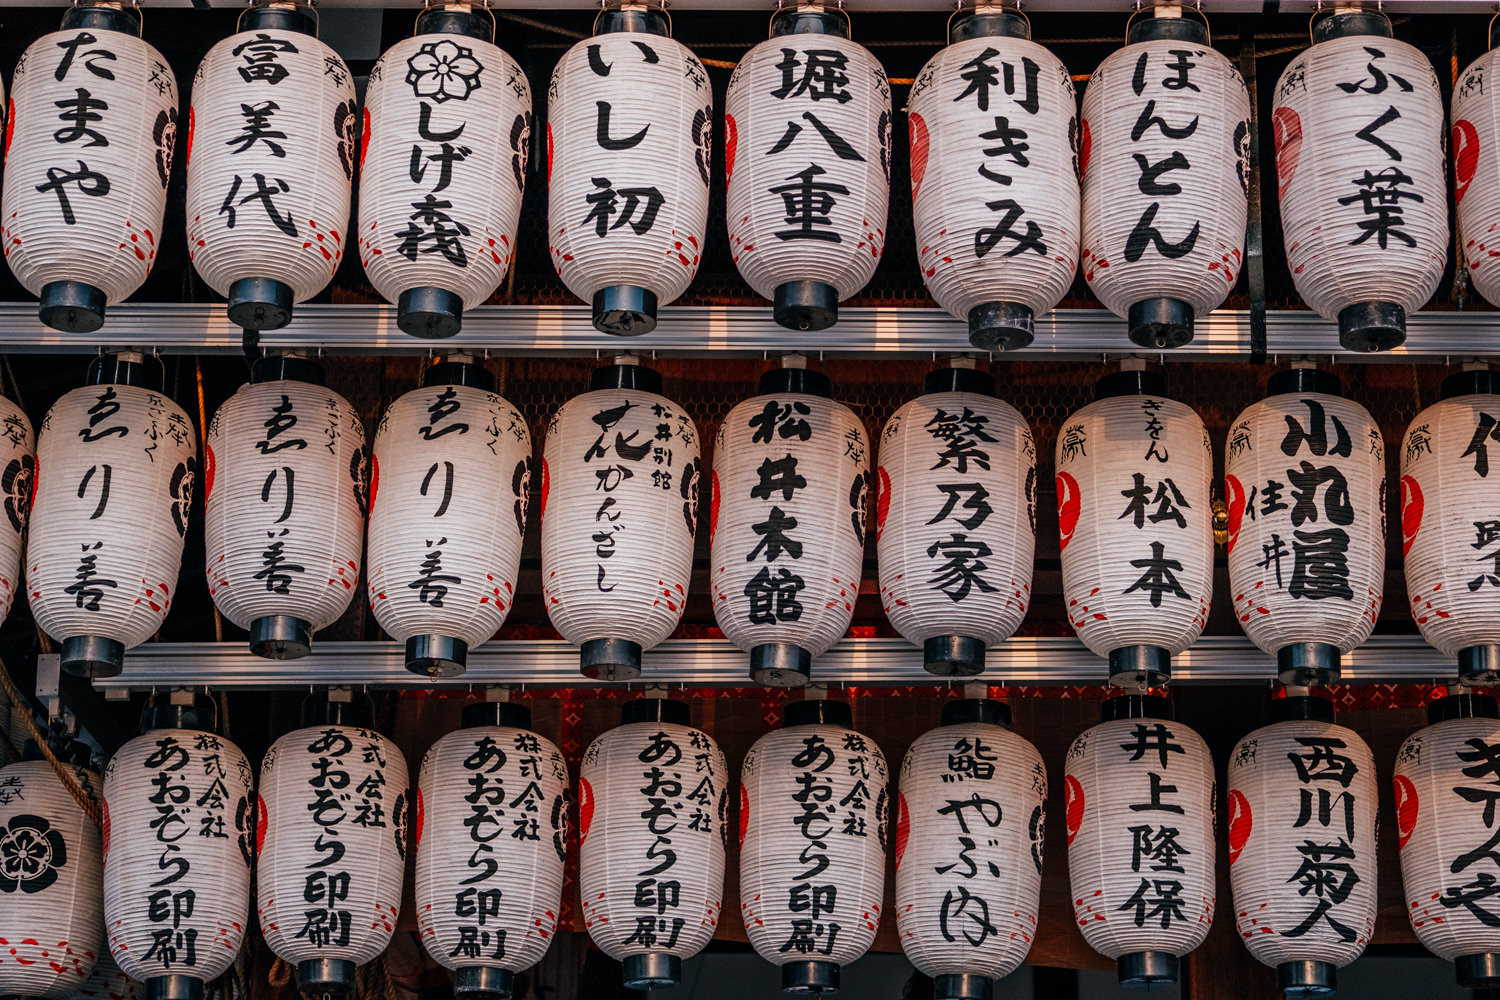 たまや
富美代
しげ森
いし初
堀八重
利きみ
ぼんとん
ふく葉
京ごふく
ゑり善
京ごふく
ゑり善
京ごふく
ゑり善
松井別館
花かんざし
松井本館
繁乃家
ぎをん
松本
小丸屋
住井
株式会社
あおぞら印刷
株式会社
あおぞら印刷
株式会社
あおぞら印刷
株式会社
あおぞら印刷
株式会社
あおぞら印刷
鮨やぶ内
井上隆保
西川菊人